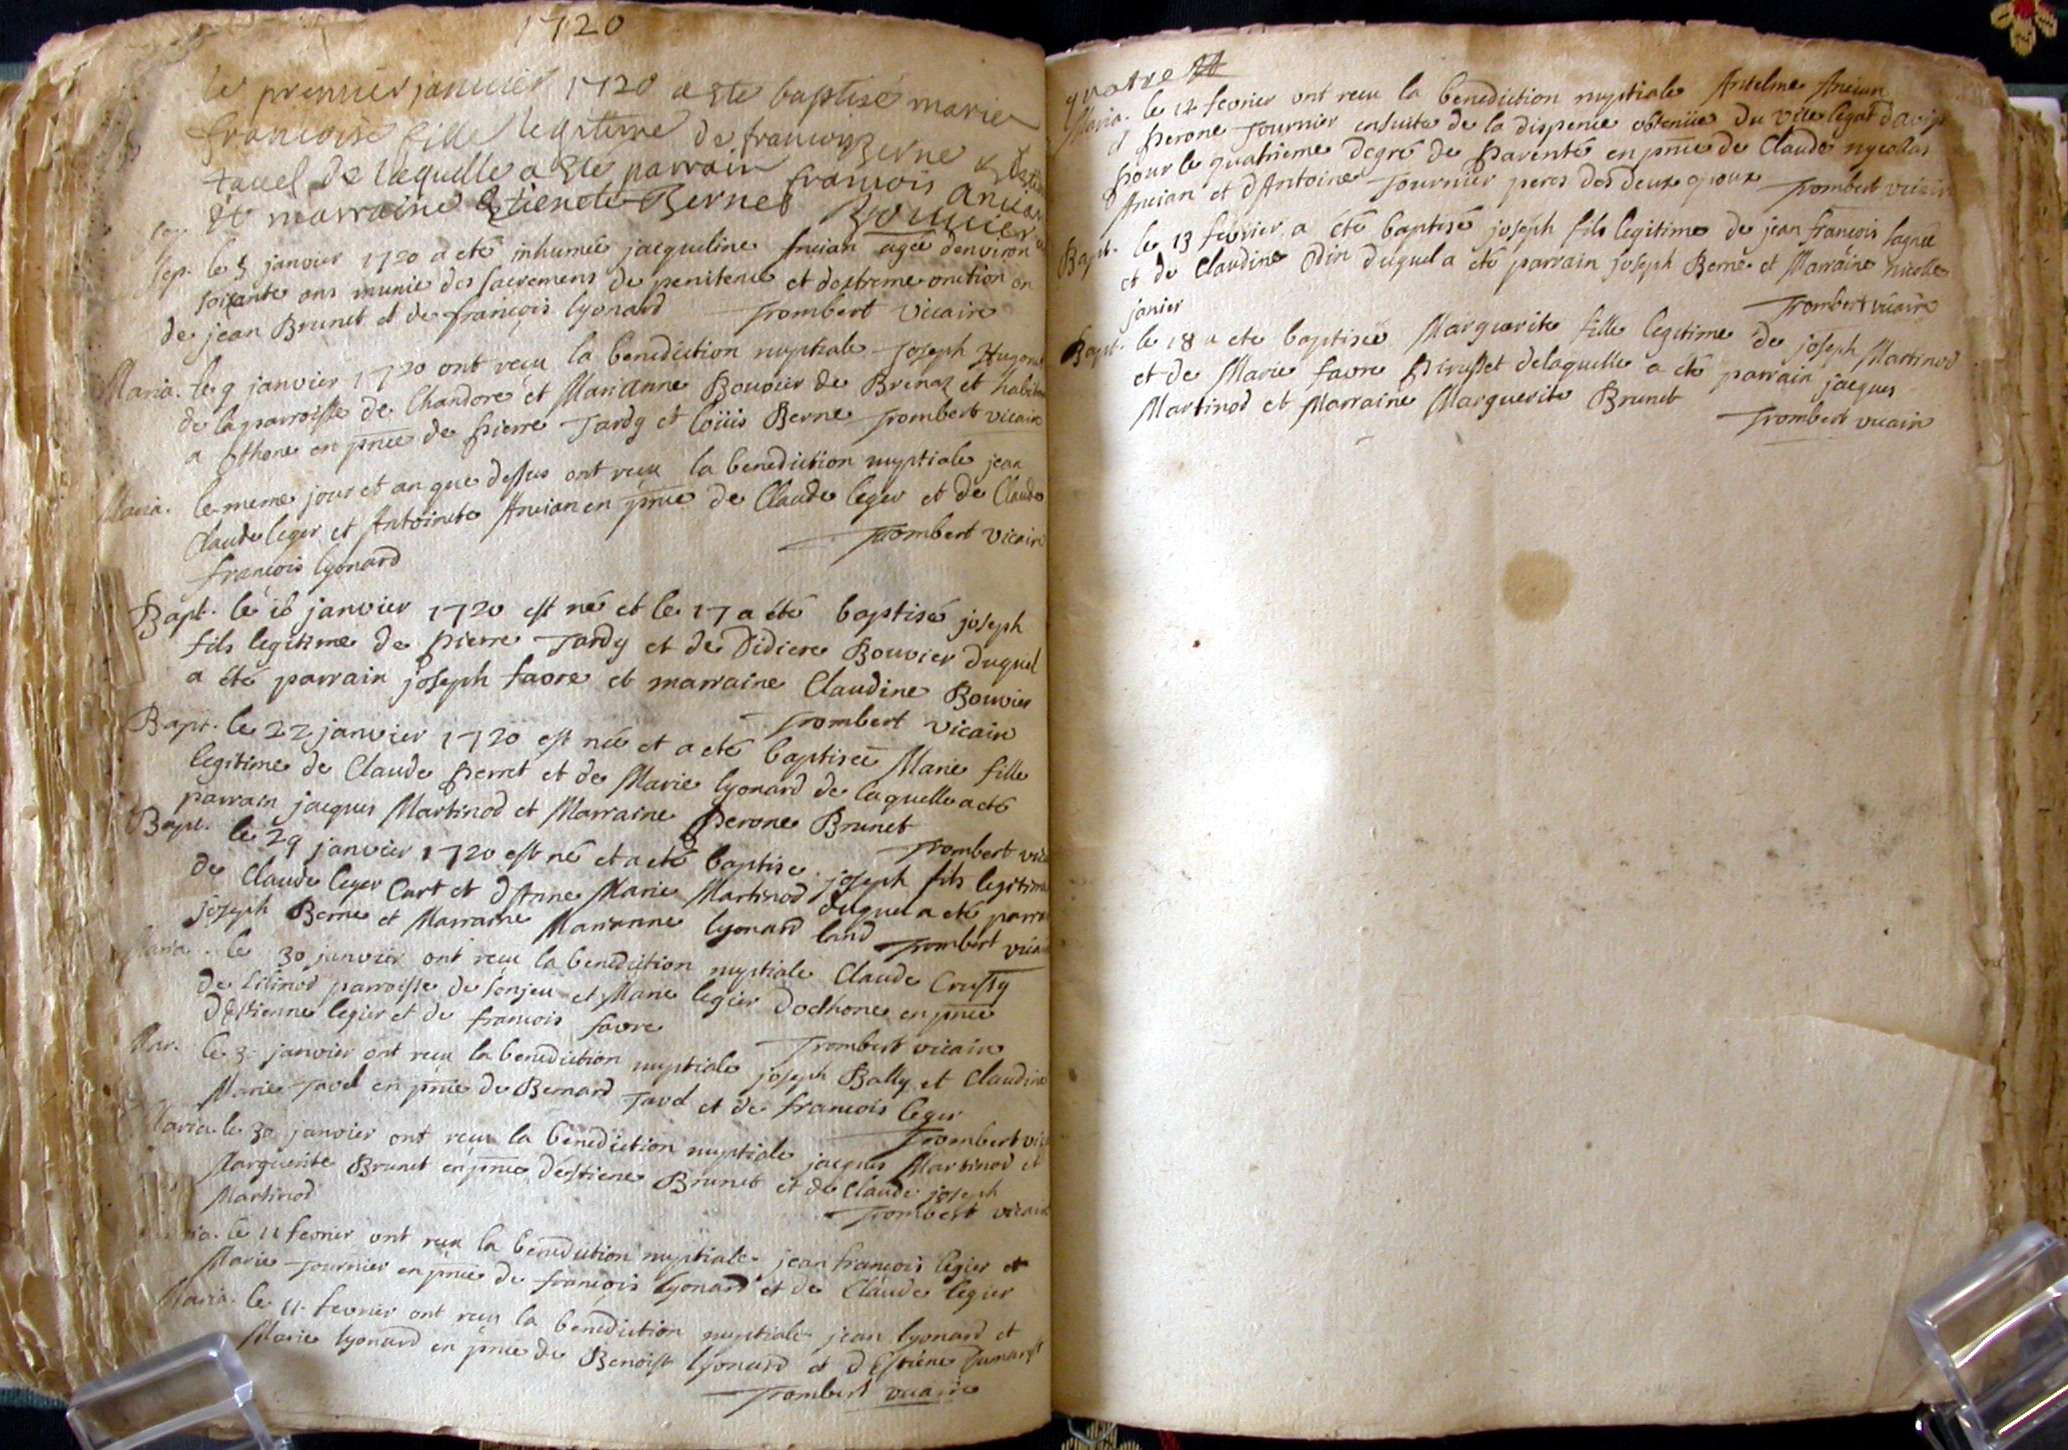 1720
le premier janvier 1720 a ste baptise marie
francoise fille legitime de francois Berne &
tavel de laquelle a ste parrain francois ancian
et marraine Berne Bouvier
Sep. le 5 janvier 1720 a eté inhumée jacqueline Ancian agée denviron
soixante ans munie des sacremens de penitence et dextreme onction en
de jean Brunet et de francois lyonard Trombert vicaire
Maria. le 9 janvier 1720 ont reçu la benediction nuptiale Joseph Hugon
de la parroisse de Chandore et Marianne Bouvier de Brenaz et habit
a othone en pnce de pierre Tardy et loüis Berne Trombert vicaire
Maria. le meme jour et an que dessus ont reçu la benediction nuptiale jean
Claude leger et Antoinete Ancian en pnce de Claude leger et de Claude
francois lyonard Trombert vicaire
Bapt. le 16 janvier 1720 est né et le 17 a été baptisé joseph
fils legitime de pierre Tardy et de Didiere Bouvier duquel
a été parrain joseph favre et marraine Claudine Bouvier
Trombert vicaire
Bapt. le 22 janvier 1720 est née et a eté baptisée Marie fille
legitime de Claude perret et de Marie lyonard de laquelle a eté
parrain jacques Martinod et Marraine perone Brunet
Trombert vica
Bapt. le 29 janvier 1720 est né et a eté baptise joseph fils legitime
de Claude leger Cart et d'Anne Marie Martinod duquel a eté parra
joseph Berne et Marraine Marianne lyonard land Trombert vica
Maria. le 30 janvier ont recu la benediction nuptiale Claude Crusty
de Lilinod parroisse de Sonjeu et Marie legier dothone en pnce
d'estienne legier et de francois favre
Trombert vicaire
Mar. le 3 janvier ont reçu la benediction nuptiale joseph Bally et Claudine
Marie Tavel en pnce de Bernard Tavel et de francois leger
Trombert vic
Maria. le 30 janvier ont reçu la benediction nuptiale jacques Martinod et
Marguerite Brunet en pnce destiene Brunet et de Claude joseph
Martinod Trombert vicaire
ria. le 11 fevrier ont reçu la benediction nuptiale jean francois legier et
Marie Tournier en pnce de francois lyonard et de Claude legier
Maria. le 11 fevrier ont reçu la benediction nuptiale jean lyonard et
Marie lyonard en pnce de Benoist lyonard et d'Estiene
Trombert vicaire
quatre
Maria. le 12 fevrier ont recu la benediction nuptiale Antelme Ancian
et perone Tournier ensuite de la dispence obtenüe du vice legat d'avig
pour le quatrieme degré de parenté en pnce de Claude nycolas
Ancian et d'Antoine Tournier peres des deux epoux Trombert vicaire
Bapt. le 13 fevrier a été baptisé joseph fils legitime de jean francois
et de Claudine Odin duquel a été parrain joseph Berne et Marraine nicolle
janier Trombert vicaire
Bapt. le 18 a eté baptisée Marguerite fille legitime de joseph Martinod
et de Marie favre de laquelle a été parrain jacques
Martinod et Marraine Marguerite Brunet
Trombert vicaire